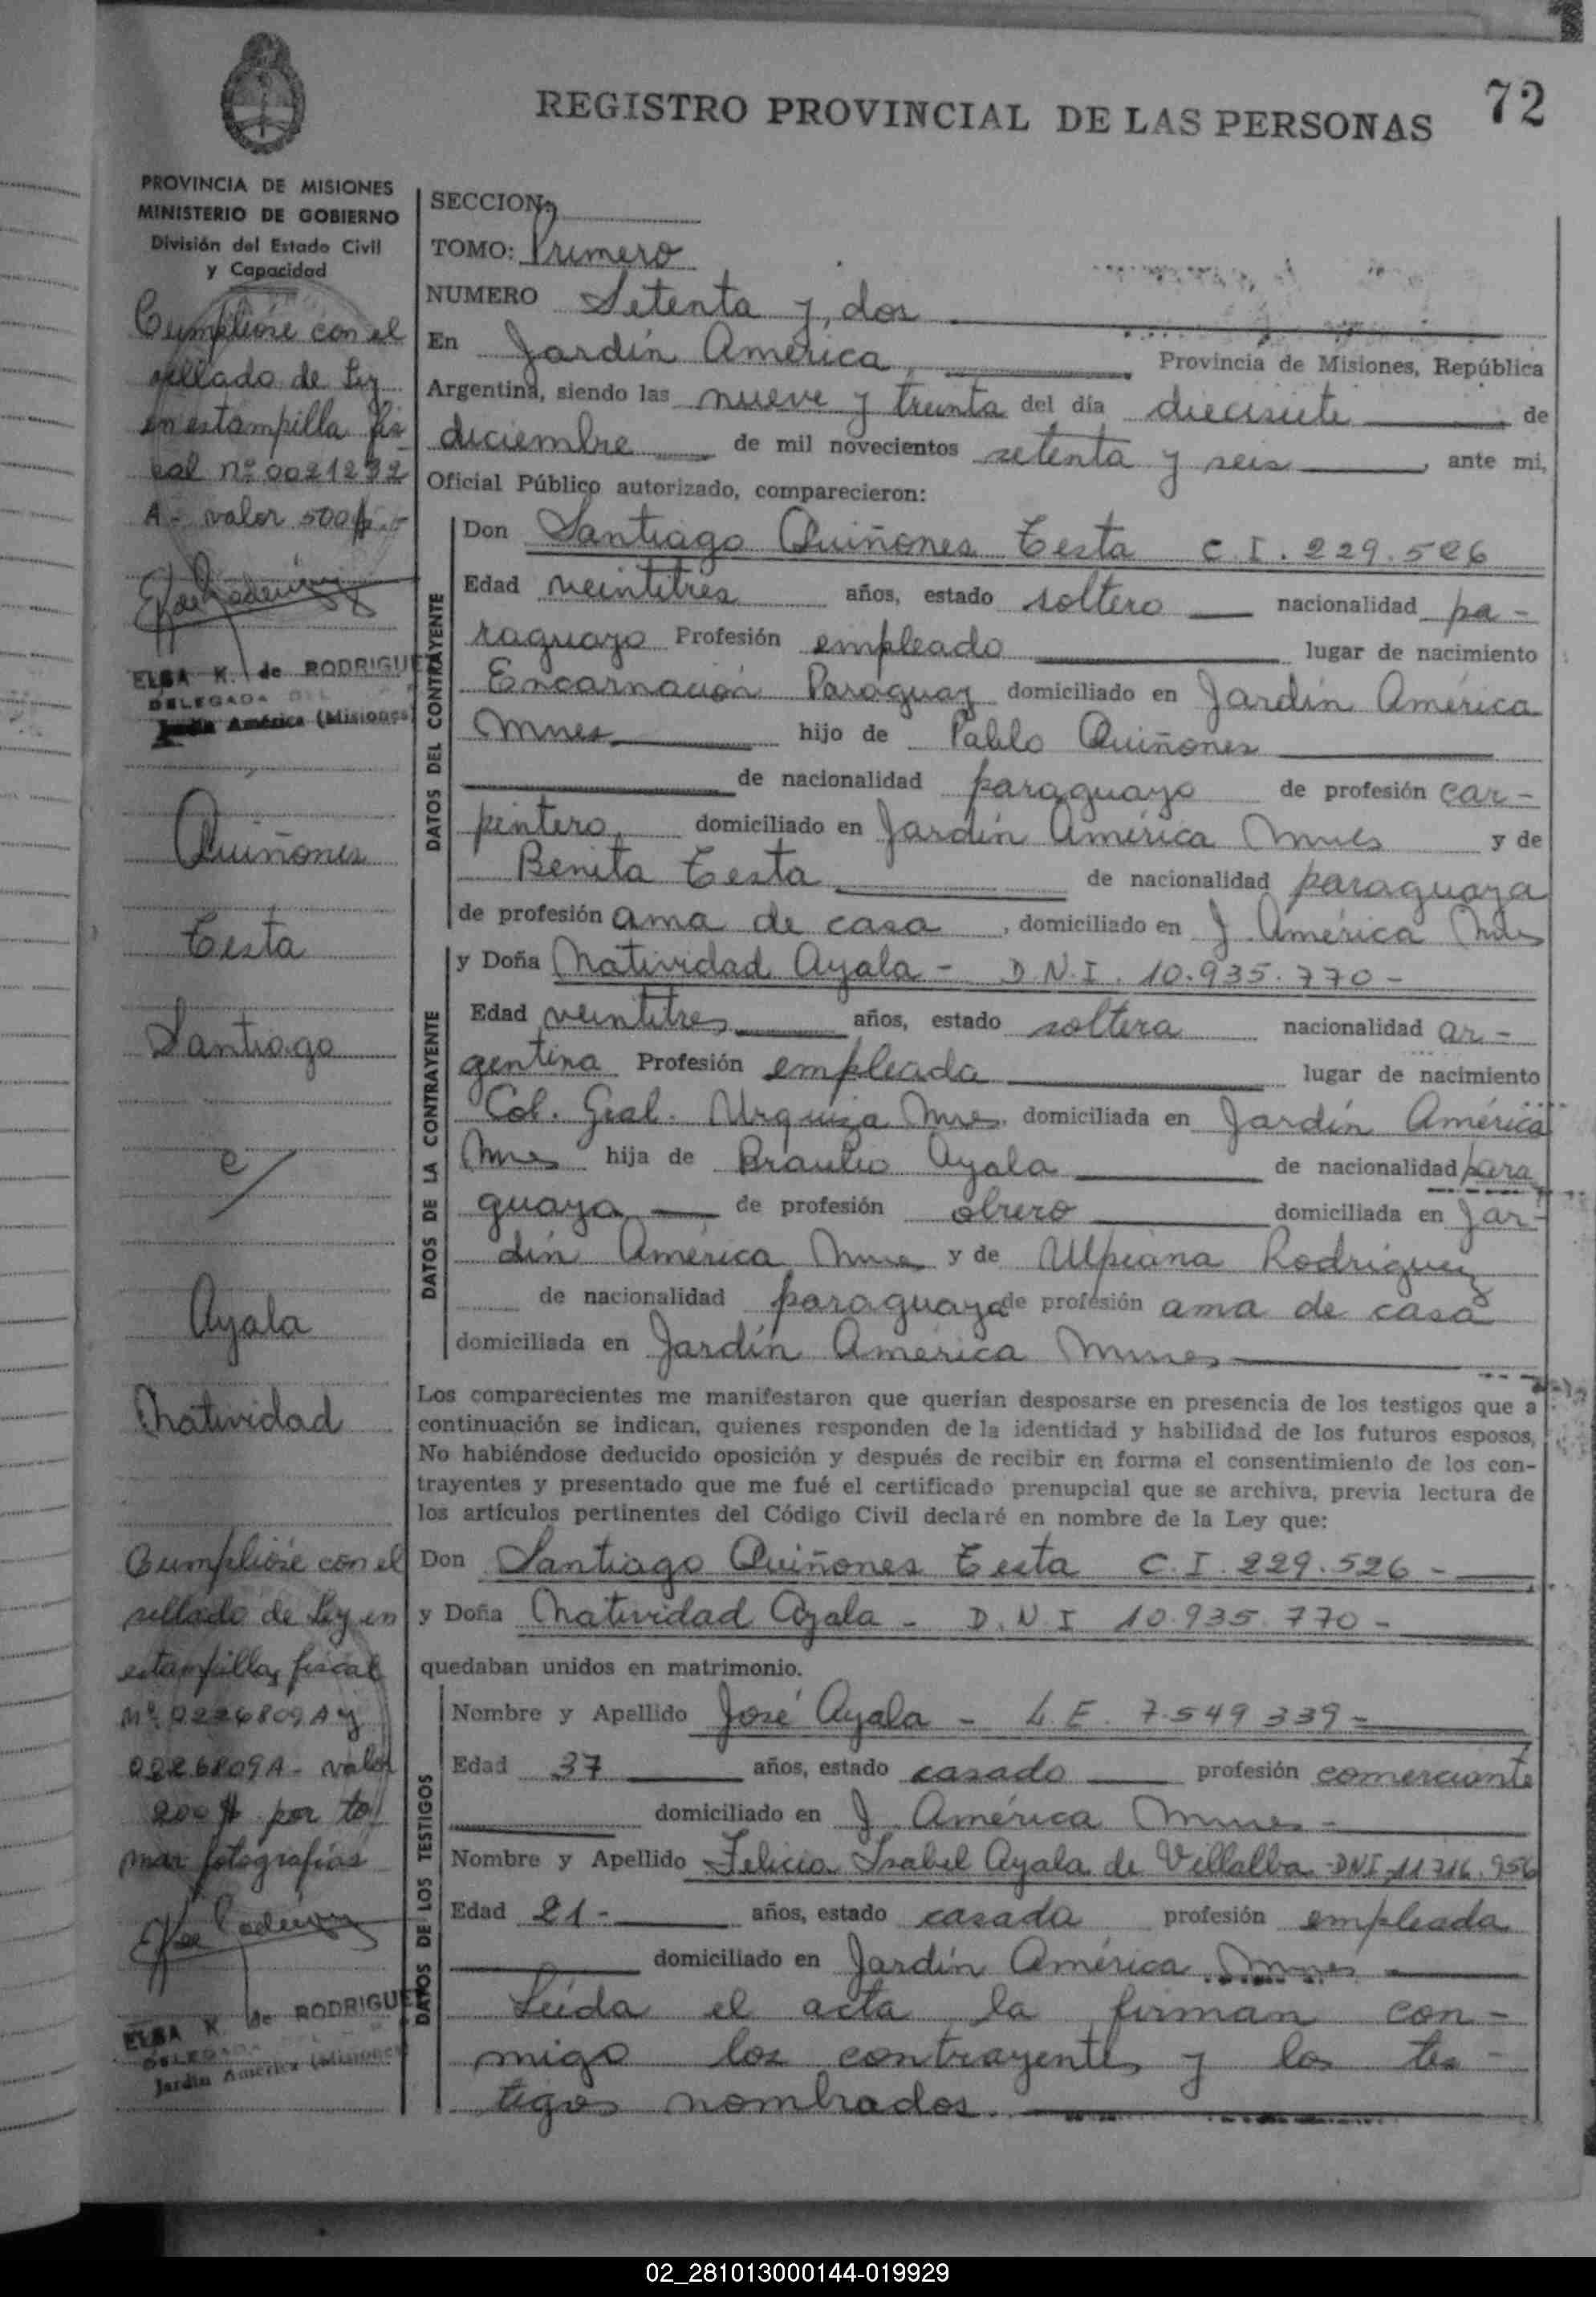 REGISTRO PROVINCIAL DE LAS PERSONAS 72
PROVINCIA DE MISIONES
MINISTERIO DE GOBIERNO
División del Estado Civil
y Capacidad
Cumplióse con el
sellado de Ley
en estampilla fis-
cal nº 0021232
A - valor 500 $.-
ELSA K. de RODRIGUEZ
DELEGADA
Jardín América (Misiones)
Quiñones
Testa
Santiago
c/
Ayala
Natividad
Cumplióse con el
sellado de Ley en
estampillas fiscal
Nº 0226809A y
0226809A - valor
200 $ por to
mar fotografías
ELSA K. de RODRIGUEZ
DELEGADA
Jardín América (Misiones)
SECCION:
TOMO: Primero
NUMERO Setenta y dos
En Jardín América, Provincia de Misiones, República
Argentina, siendo las nueve y treinta del día diecisiete de
diciembre de mil novecientos setenta y seis, ante mi,
Oficial Público autorizado, comparecieron:
DATOS DEL CONTRAYENTE
Don Santiago Quiñones Testa C.I. 229.526
Edad veintitres años, estado soltero nacionalidad pa-
raguayo Profesión empleado lugar de nacimiento
Encarnación Paraguay domiciliado en Jardín América
Mnes hijo de Pablo Quiñones
de nacionalidad paraguayo de profesión car-
pintero, domiciliado en Jardín América Mnes y de
Benita Testa de nacionalidad paraguaya
de profesión ama de casa, domiciliado en J. América Mnes
DATOS DE LA CONTRAYENTE
y Doña Natividad Ayala - D.N.I. 10.935.770-
Edad veintitres años, estado soltera nacionalidad ar-
gentina Profesión empleada lugar de nacimiento
Col. Gral. Urquiza Mnes. domiciliada en Jardín América
Mnes hija de Braulio Ayala de nacionalidad para
guaya de profesión obrero domiciliada en Jar-
dín América Mnes y de Ulpiana Rodriguez
de nacionalidad paraguaya de profesión ama de casa
domiciliada en Jardín América Mnes
Los comparecientes me manifestaron que querían desposarse en presencia de los testigos que a
continuación se indican, quienes responden de la identidad y habilidad de los futuros esposos,
No habiéndose deducido oposición y después de recibir en forma el consentimiento de los con-
trayentes y presentado que me fué el certificado prenupcial que se archiva, previa lectura de
los artículos pertinentes del Código Civil declaré en nombre de la Ley que:
Don Santiago Quiñones Testa C.I. 229.526 -
y Doña Natividad Ayala - D.N.I 10.935.770 -
quedaban unidos en matrimonio.
DATOS DE LOS TESTIGOS
Nombre y Apellido José Ayala - L.E. 7.549.339 -
Edad 37 años, estado casado profesión comerciante
domiciliado en J. América Mnes -
Nombre y Apellido Felicia Isabel Ayala de Villalba - DNI 11.716.956
Edad 21- años, estado casada profesión empleada
domiciliado en Jardín América Mnes
Leida el acta la firman con-
migo los contrayentes y los tes-
tigos nombrados.
02_281013000144-019929